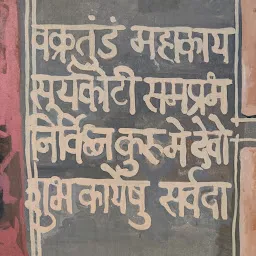 वक्रतुंडं महाकाय
सूर्यकोटी समप्रभं
निर्विघ्न कुरू मे देवो
शुभ कार्येषु सर्वदा